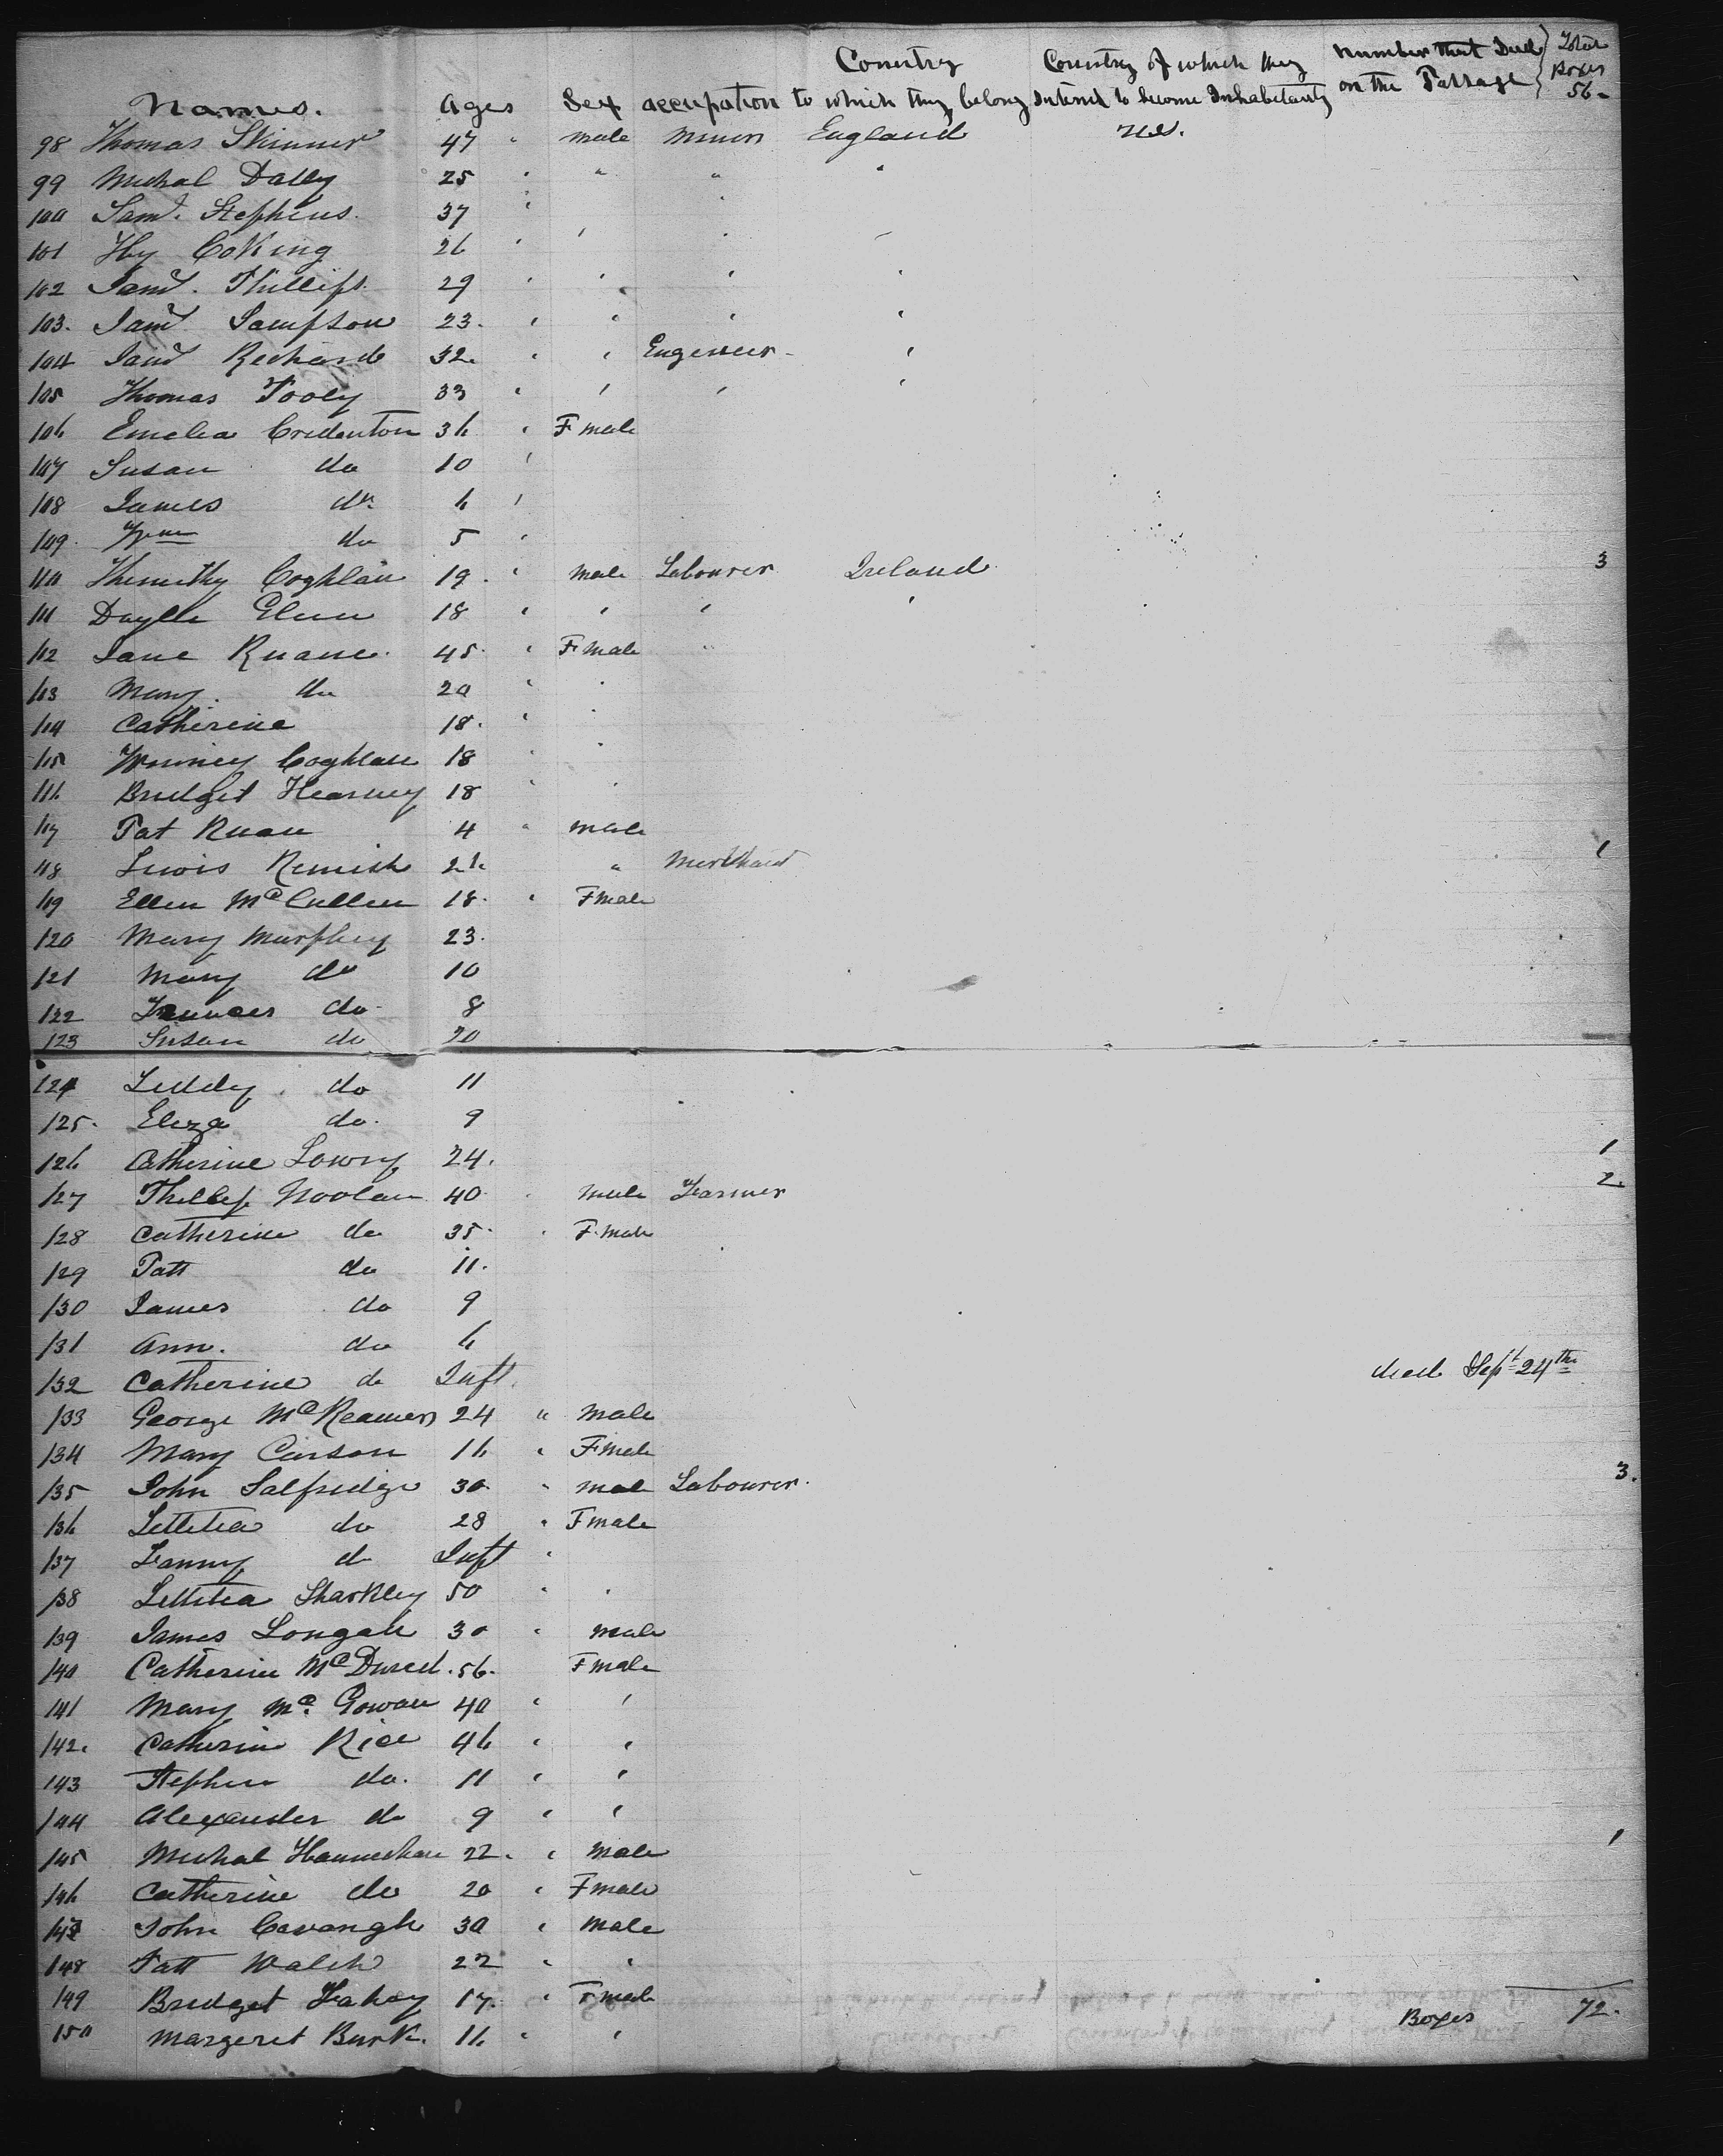 Names. Ages Sex occupation Country to which they belong Country of which they Intend to become Inhabitants Number that Died on the Passage Total Boxes 56-
98 Thomas Skinner 47 " male Miner England U.S.
99 Michal Dally 25 " " " "
100 Saml. Stephens 37 " "
101 Hy CoKing 26 ' ' ' -
102 Saml. Phillips 29 ' ' ' '
103. Saml Sampson 23. ' ' ' '
104 Saml Richards 32. ' ' Engeneer - '
105 Thomas Tooly 33 ' ' ' '
106 Emelia Credenton 36 ' F male
107 Susan do 10 '
108 James do 6 '
109. Wm do 5 '
110 Themothy Coghlan 19. ' male Labourer Ireland 3
111 18 ' ' ' '
112 Jane Ruane. 45. ' F male "
113 Mary. do 20 ' '
114 Catherine 18. ' '
115 Winney Coghlan 18 ' '
116 Bridget Hearney 18 ' '
117 Pat Ruan 4 " male
118 Lewis Remish 26 " Merkhant 1
119 Ellen McCullen 18. ' F male
120 Mary Murphey 23.
121 Mary do 10
122 Frances do 8
123 Susan do 20
124 Liddy do 11
125. Eliza do. 9
126 Catherine Lowry 24. 1
127 Phillip Noolan 40 ' male Farmer 2
128 Catherine do 35. ' F. male
129 Patt do 11.
130 James do 9
131 Ann. do 6
132 Catherine do Inft. died Sept 24th
133 George McKeamen 24 " male
134 Mary Carson 16 ' F male
135 John Salfridge 30 " male Labourer. 3.
136 Lettetia do 28 " F male
137 Fanny do Inft '
138 Lettitia Sharkley 50 ' '
139 James Longan 30 ' male
140 Catherine Mc 56. F male
141 Mary Mc. Gowan 40 ' '
142. Catherine Rice 46 ' '
143 Stephen do. 11 ' '
144 Alexander do 9 ' '
145 Michal 22. ' male 1
146 Catherine do 20 ' F male
147 John Cavangh 30 ' male
148 Patt Walsh 22 ' '
149 Bridget Fahey 17. ' F male
150 Margeret Burk. 16 ' ' Boxes 72.